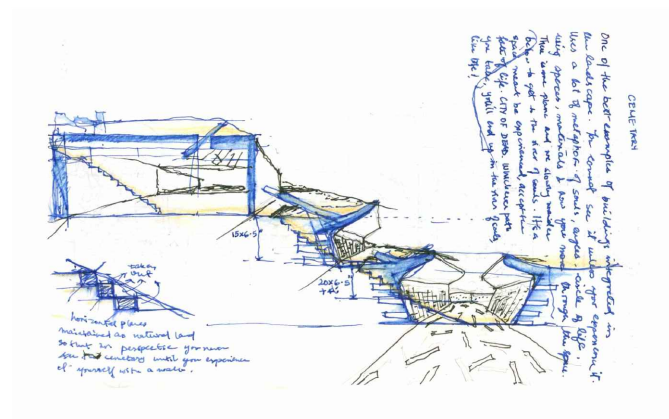 CEMETARY
One of the best examples of buildings integrated in
the landscape. You cannot see it unless you experience it.
Uses a lot of metaphors of souls, angels, circle of life.
using spaces, materials & how you move through the space.
There is one plane and we slowly wander
below to get to the river of souls. It's a
space meant to be experienced, accept the
path of life. CITY OF DEAD. Whichever path
you take, you'll end up in the river of souls
like life!
15x6.5"
20x6.5"
taken
out
horizontal planes
maintained as natural land
so that in perspective you never
see the cemetary until you experience
it yourself with a walk.